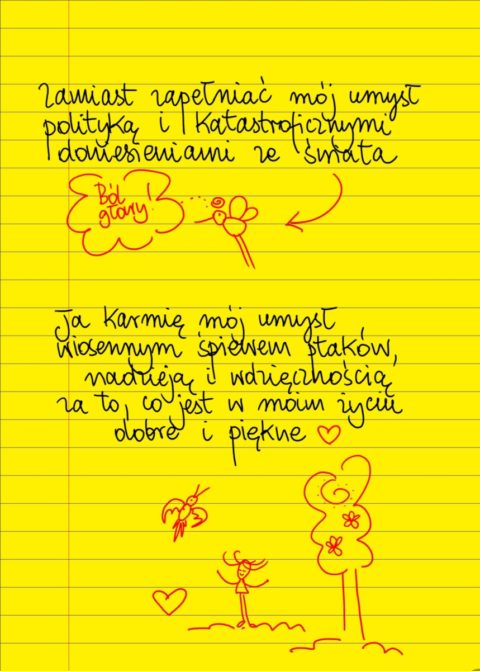 Zamiast zapełniać mój umysł
polityką i katastroficznymi
doniesieniami ze świata
Ból
głowy!
Ja karmię mój umysł
wiosennym śpiewem ptaków,
nadzieją i wdzięcznością
za to, co jest w moim życiu
dobre i piękne